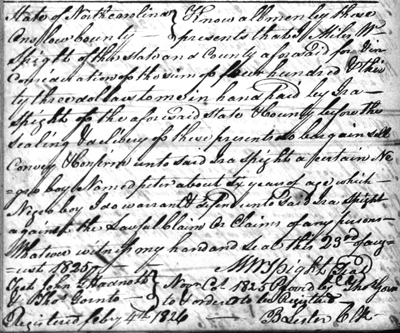 State of North carolina } Know all men by these
Onslow County } presents that I Miles W.
Spight of the state and County aforesaid for & in
Consideration of the sum of four hundred & thir
ty three dollars to me in hand paid by Ira
Spight of the aforesaid state & County before the
sealing & delivery of these presents do bargain sell
Convey & Confirm unto said Ira Spight a certain Ne
=gro boy Named peter about years of age, which
Negro boy I do warrant & defend unto said Ira Spight
against the Lawful Claim or Claims of any persons
Whatever witness my hand and seal this 23d of aug
=ust 1825
M W Spight Seal
John
& Thos Younts } Nov Ct 1825 Proved by Thos Youn
to & ordered to be Registered
Registered feby 4th 1826 B Lester Clk